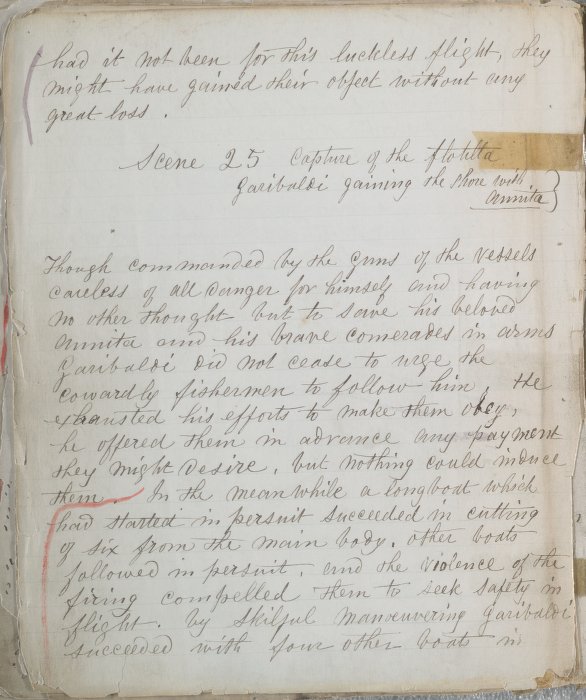 had it not been for this luckless flight, they
might have gained their object without any
great loss.
Scene 25 Capture of the flotilla
Garibaldi gaining the shore with
Annita
Though commanded by the guns of the vessels
careless of all danger for himself and having
no other thought but to save his beloved
Annita and his brave comerades in arms
Garibaldi did not cease to urge the
cowardly fishermen to follow him, He
exhausted his efforts to make them obey,
he offered them in advance any payment
they might desire, but nothing could induce
them. In the meanwhile a longboat which
had started in persuit succeeded in cutting
of six from the main body. other boats
followed in persuit, and the violence of the
firing compelled them to seek safety in
flight. by skilful manoeuvering Garibaldi
succeeded with four other boat in